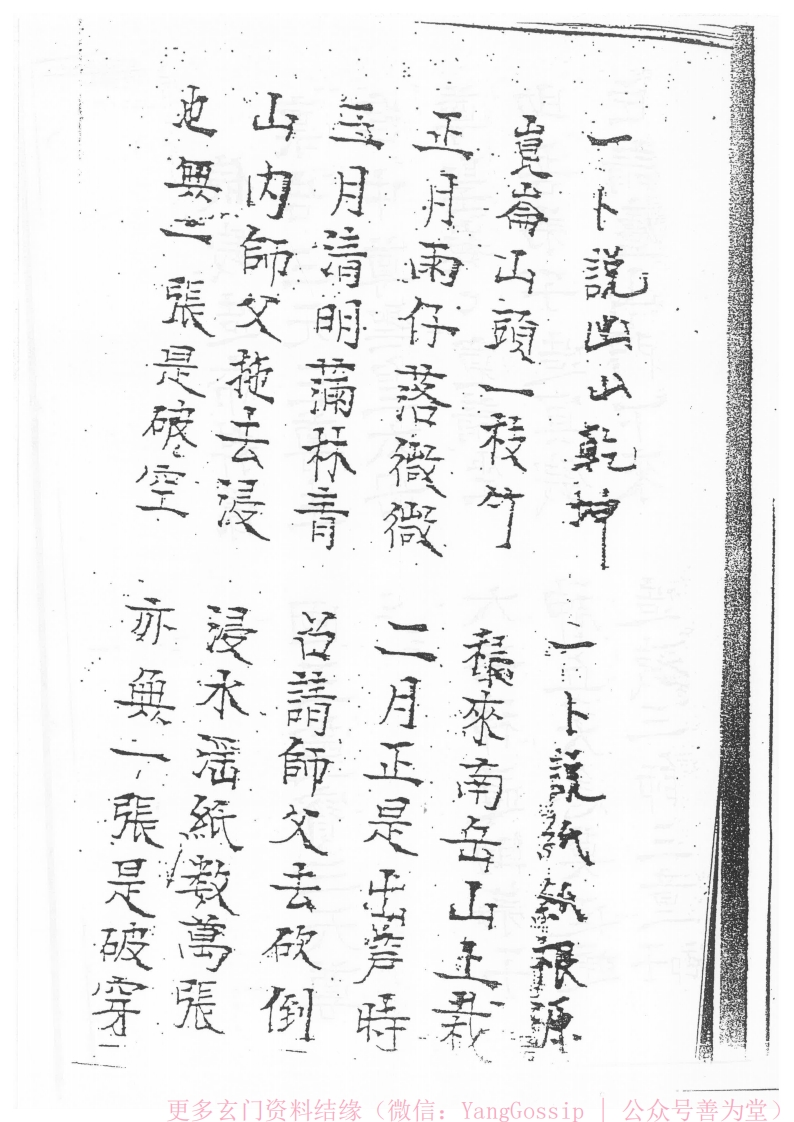 一卜說出山乾坤
一卜說紙紙根源
崑崙山頭一枝竹
移來南岳山上栽
正月雨仔落微微
二月正是出笋時
三月清明蒲林青
召請師父去砍倒
山内師父拖去浸
浸水滛紙数萬張
也無一張是破空
亦無一張是破穿
更多玄门资料结缘（微信：YangGossip | 公众号善为堂）